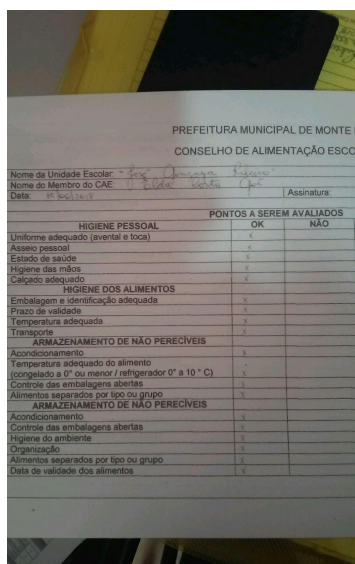 PREFEITURA MUNICIPAL DE MONTE
CONSELHO DE ALIMENTAÇÃO ESCO
Nome da Unidade Escolar: José Ribeiro
Nome do Membro do CAE: Elda
Data: Assinatura:
PONTOS A SEREM AVALIADOS
HIGIENE PESSOAL OK NÃO
Uniforme adequado (avental e toca) x
Asseio pessoal x
Estado de saúde x
Higiene das mãos x
Calçado adequado x
HIGIENE DOS ALIMENTOS
Embalagem e identificação adequada x
Prazo de validade x
Temperatura adequada x
Transporte x
ARMAZENAMENTO DE NÃO PERECÍVEIS
Acondicionamento x
Temperatura adequado do alimento
(congelado a 0° ou menor / refrigerador 0° a 10 ° C) x
Controle das embalagens abertas x
Alimentos separados por tipo ou grupo x
ARMAZENAMENTO DE NÃO PERECÍVEIS
Acondicionamento x
Controle das embalagens abertas x
Higiene do ambiente x
Organização x
Alimentos separados por tipo ou grupo x
Data de validade dos alimentos x